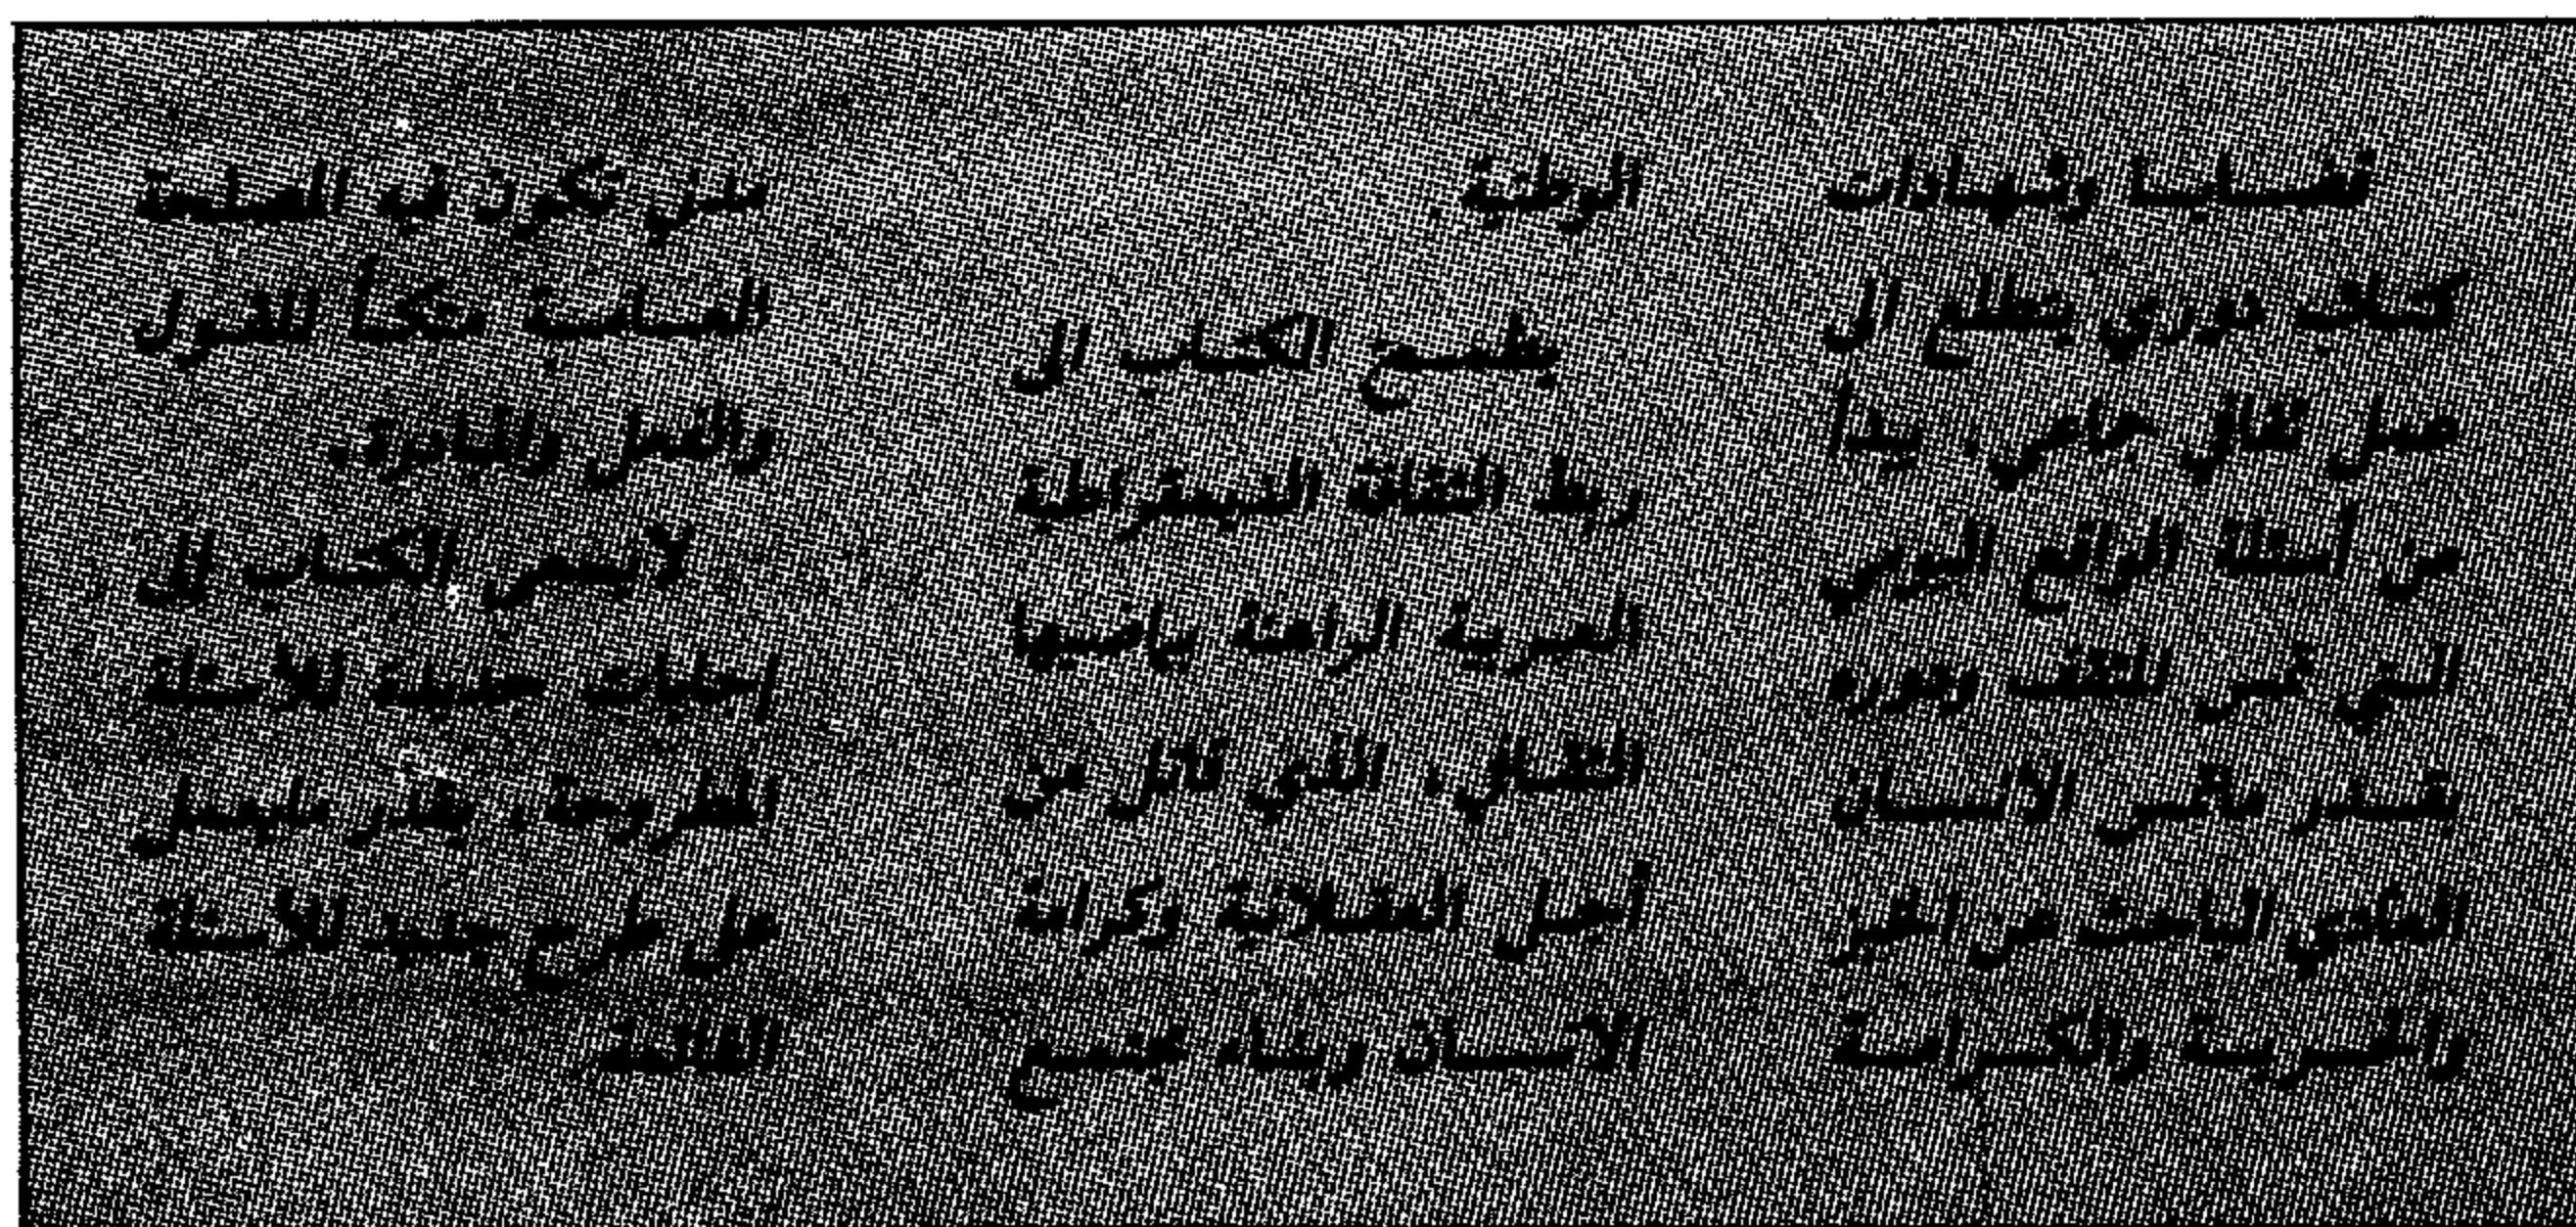 قضايا وشهادات
كتاب دوري يتطلع الى
عمل ثقافي جماعي، يبدأ
من أسئلة الواقع اليومي
التي تمس المثقف ودوره
بقدر ماتمس الانسان
العادي الباحث عن الخبز
والحرية والكرامة
الوطنية.
يطمح الكتاب الى
ربط الثقافة الديمقراطية
العربية الراهنة بماضيها
الثقافي، الذي قاتل من
أجل العقلانية وكرامة
الانسان وبناء مجتمع
مدني تكون فيه المصلحة
العامة متكأ للقول
والعمل والمبادرة.
لايسعى الكتاب إلى
إجابات جديدة للأسئلة
المطروحة، بقدر مايعمل
على طرح جديد للأسئلة
القائمة.